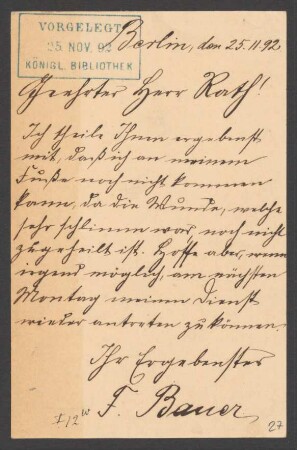 VORGELEGT
25. NOV. 92
KÖNIGL. BIBLIOTHEK
Berlin, den 25.11.92
Geehrter Herr Rath!
Ich theile Ihnen ergebenst
mit, daß ich an meinem
Fuße noch nicht kommen
kann, da die Wunde, welche
sehr schlimm war noch nicht
zugeheilt ist. Hoffe aber, wenn
irgend möglich, am nächsten
Montag meinen Dienst
wieder antreten zu können.
Ihr Ergebenster
F. Bauer
I/2 w
27